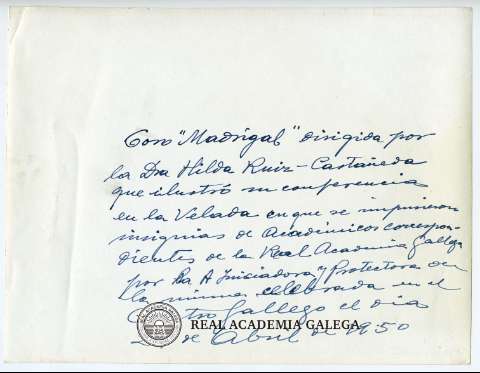 Coro "Madrigal" dirigida por
la Dra Hilda Ruiz-Castañeda
que ilustró su conferencia
en la Velada en que se impusieron
insignias de Académicos correspon-
dientes de la Real Academia Gallega
por la A Iniciadora y Protectora de
la misma celebrada en el
Centro Gallego el dia
de Abril de 1950
REAL ACADEMIA GALEGA